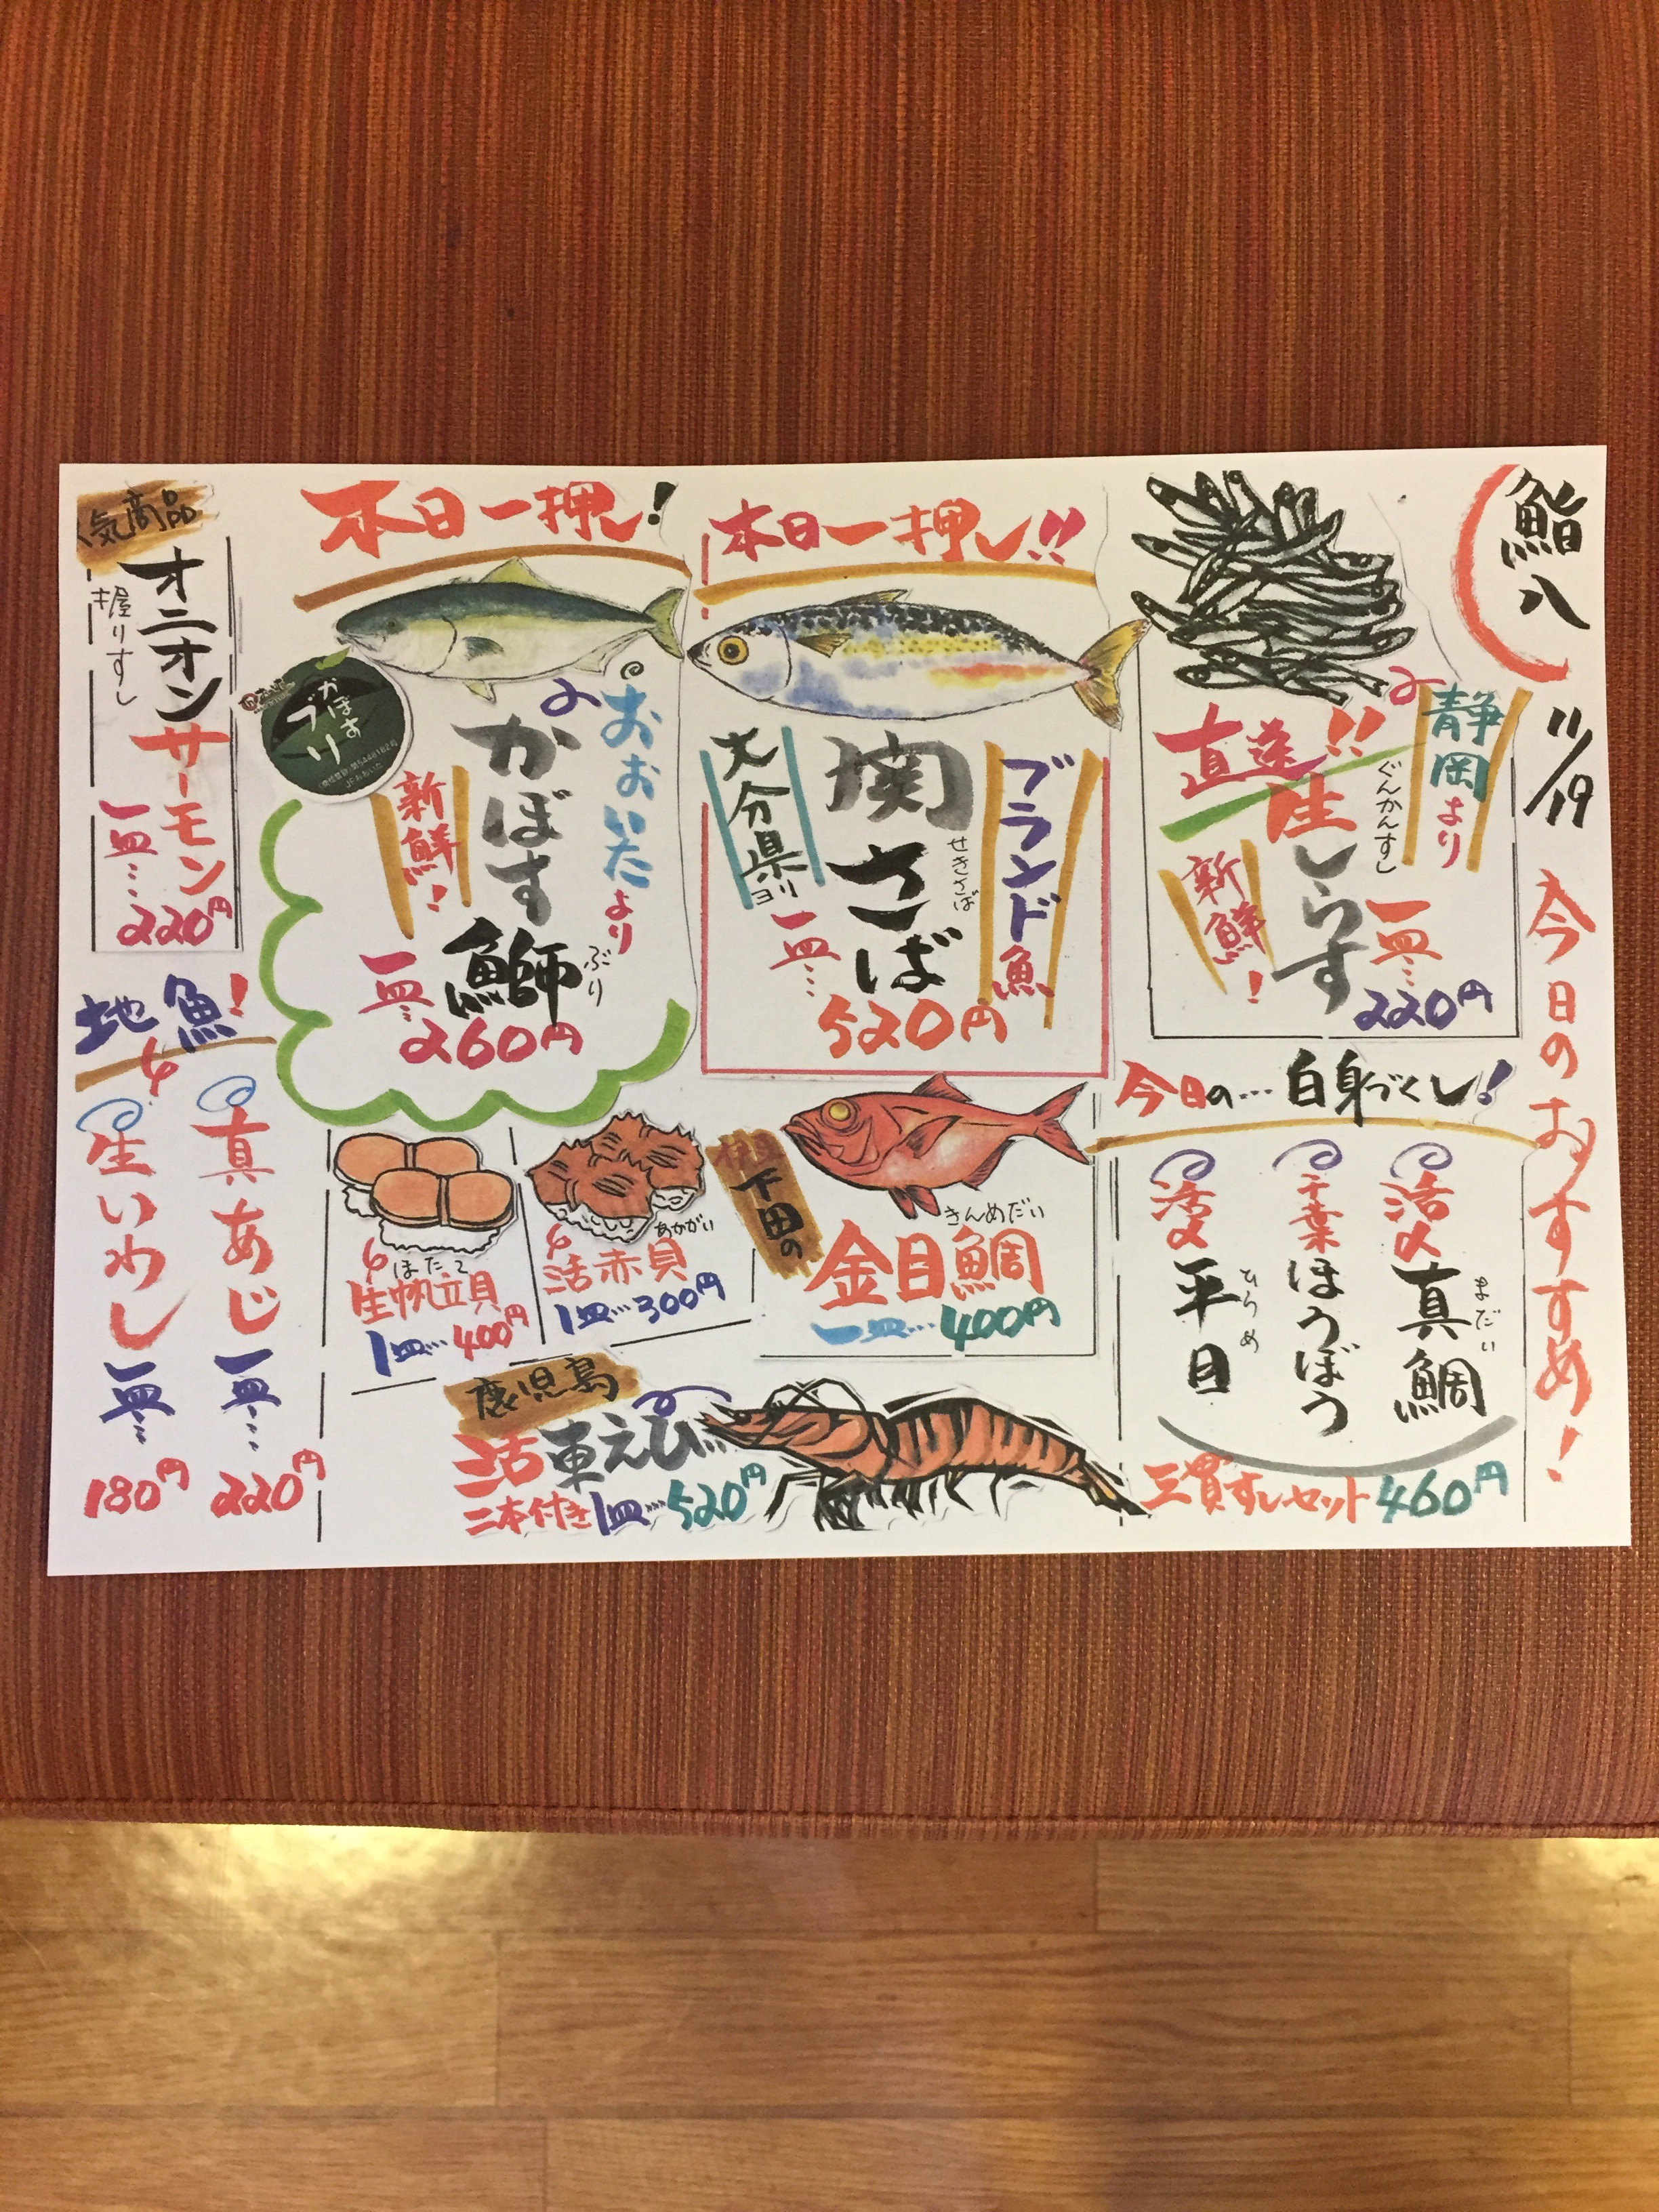 鮨八
11/19
今日のおすすめ!
静岡より
直送!!
ぐんかんずし
生しらす
新鮮!
一皿…
220円
今日の…白身づくし!
活〆
真鯛
まだい
千葉
ほうぼう
活〆
平目
ひらめ
三貫ずしセット460円
本日一押し!!
ブランド魚
関さば
せきさば
大分県ヨリ
一皿…
520円
下田の
きんめだい
金目鯛
一皿…400円
本日一押し!
おおいたより
かぼす
鰤
ぶり
新鮮!
かぼす
ブリ
一皿…
260円
あかがい
活赤貝
1皿…300円
ほたて
生帆立貝
1皿…400円
鹿児島
活車えび
二本付き1皿…520円
人気商品
オニオン
サーモン
握りずし
一皿…
220円
地魚!
真あじ
一皿…
220円
生いわし
一皿…
180円